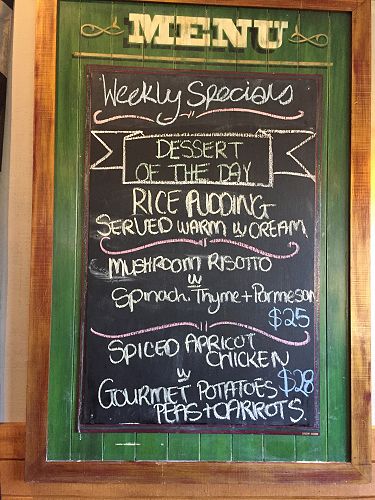 MENU
Weekly Specials
DESSERT
OF THE DAY
RICE PUDDING
SERVED WARM W CREAM
MUSHROOM RISOTTO
W
Spinach. Thyme + Parmesan
$25
SPICED APRICOT
CHICKEN
W
GOURMET POTATOES $28
PEAS + CARROTS